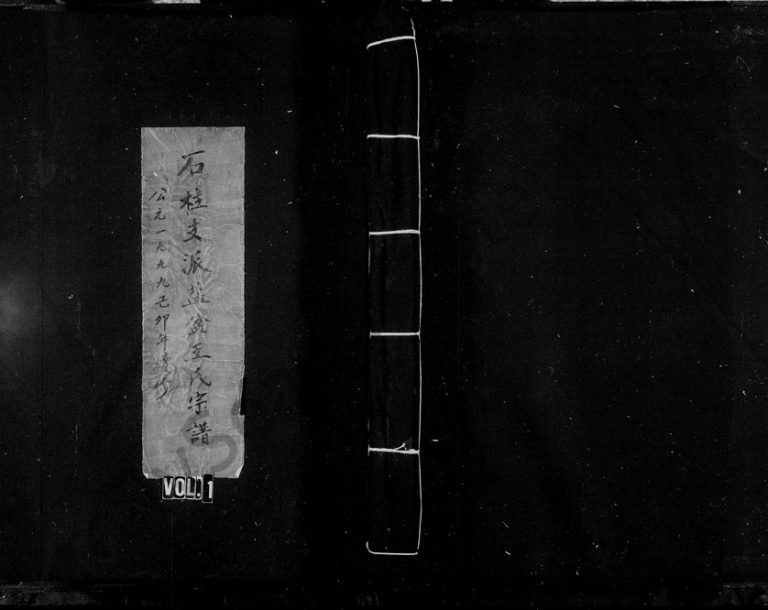 石柱支派盐義王氏宗譜
公元一九九九己卯年續修
VOL. 1